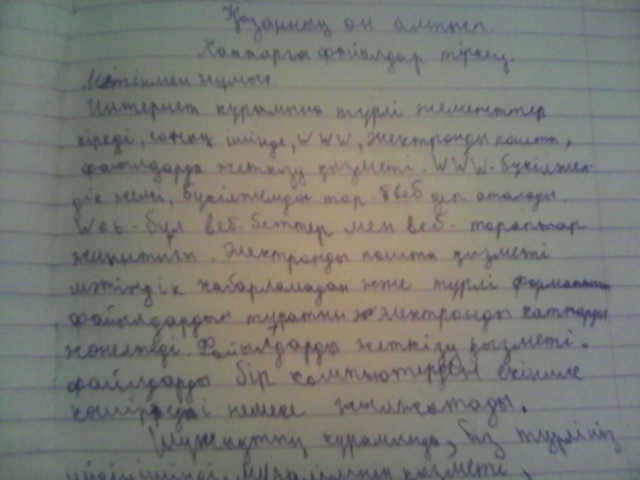 Қазанның он алтысы.
Хаттарға файлдар тіркеу.
Мәтінмен жұмыс
Интернет құрамына түрлі элементтер
кіреді, соның ішінде, www, электронды пошта,
файылдарды жеткізу қызметі. WWW-бүкіләлем-
дік желі, бүкіләлемдік тор. веб деп аталады.
Web-бұл веб-беттер мен веб-тораптар
жиынтығы. Электронды пошта қызметі
мәтіндік хабарламадан және түрлі форматтағы
файылдардын тұратын электронды хаттарды
жөнелтеді. Файылдарды жеткізу қызметі.
файлдарды бір компьютерден екінші
көшіреді немесе жылжытады.
құрамында, біз түрлініз
қызметі,